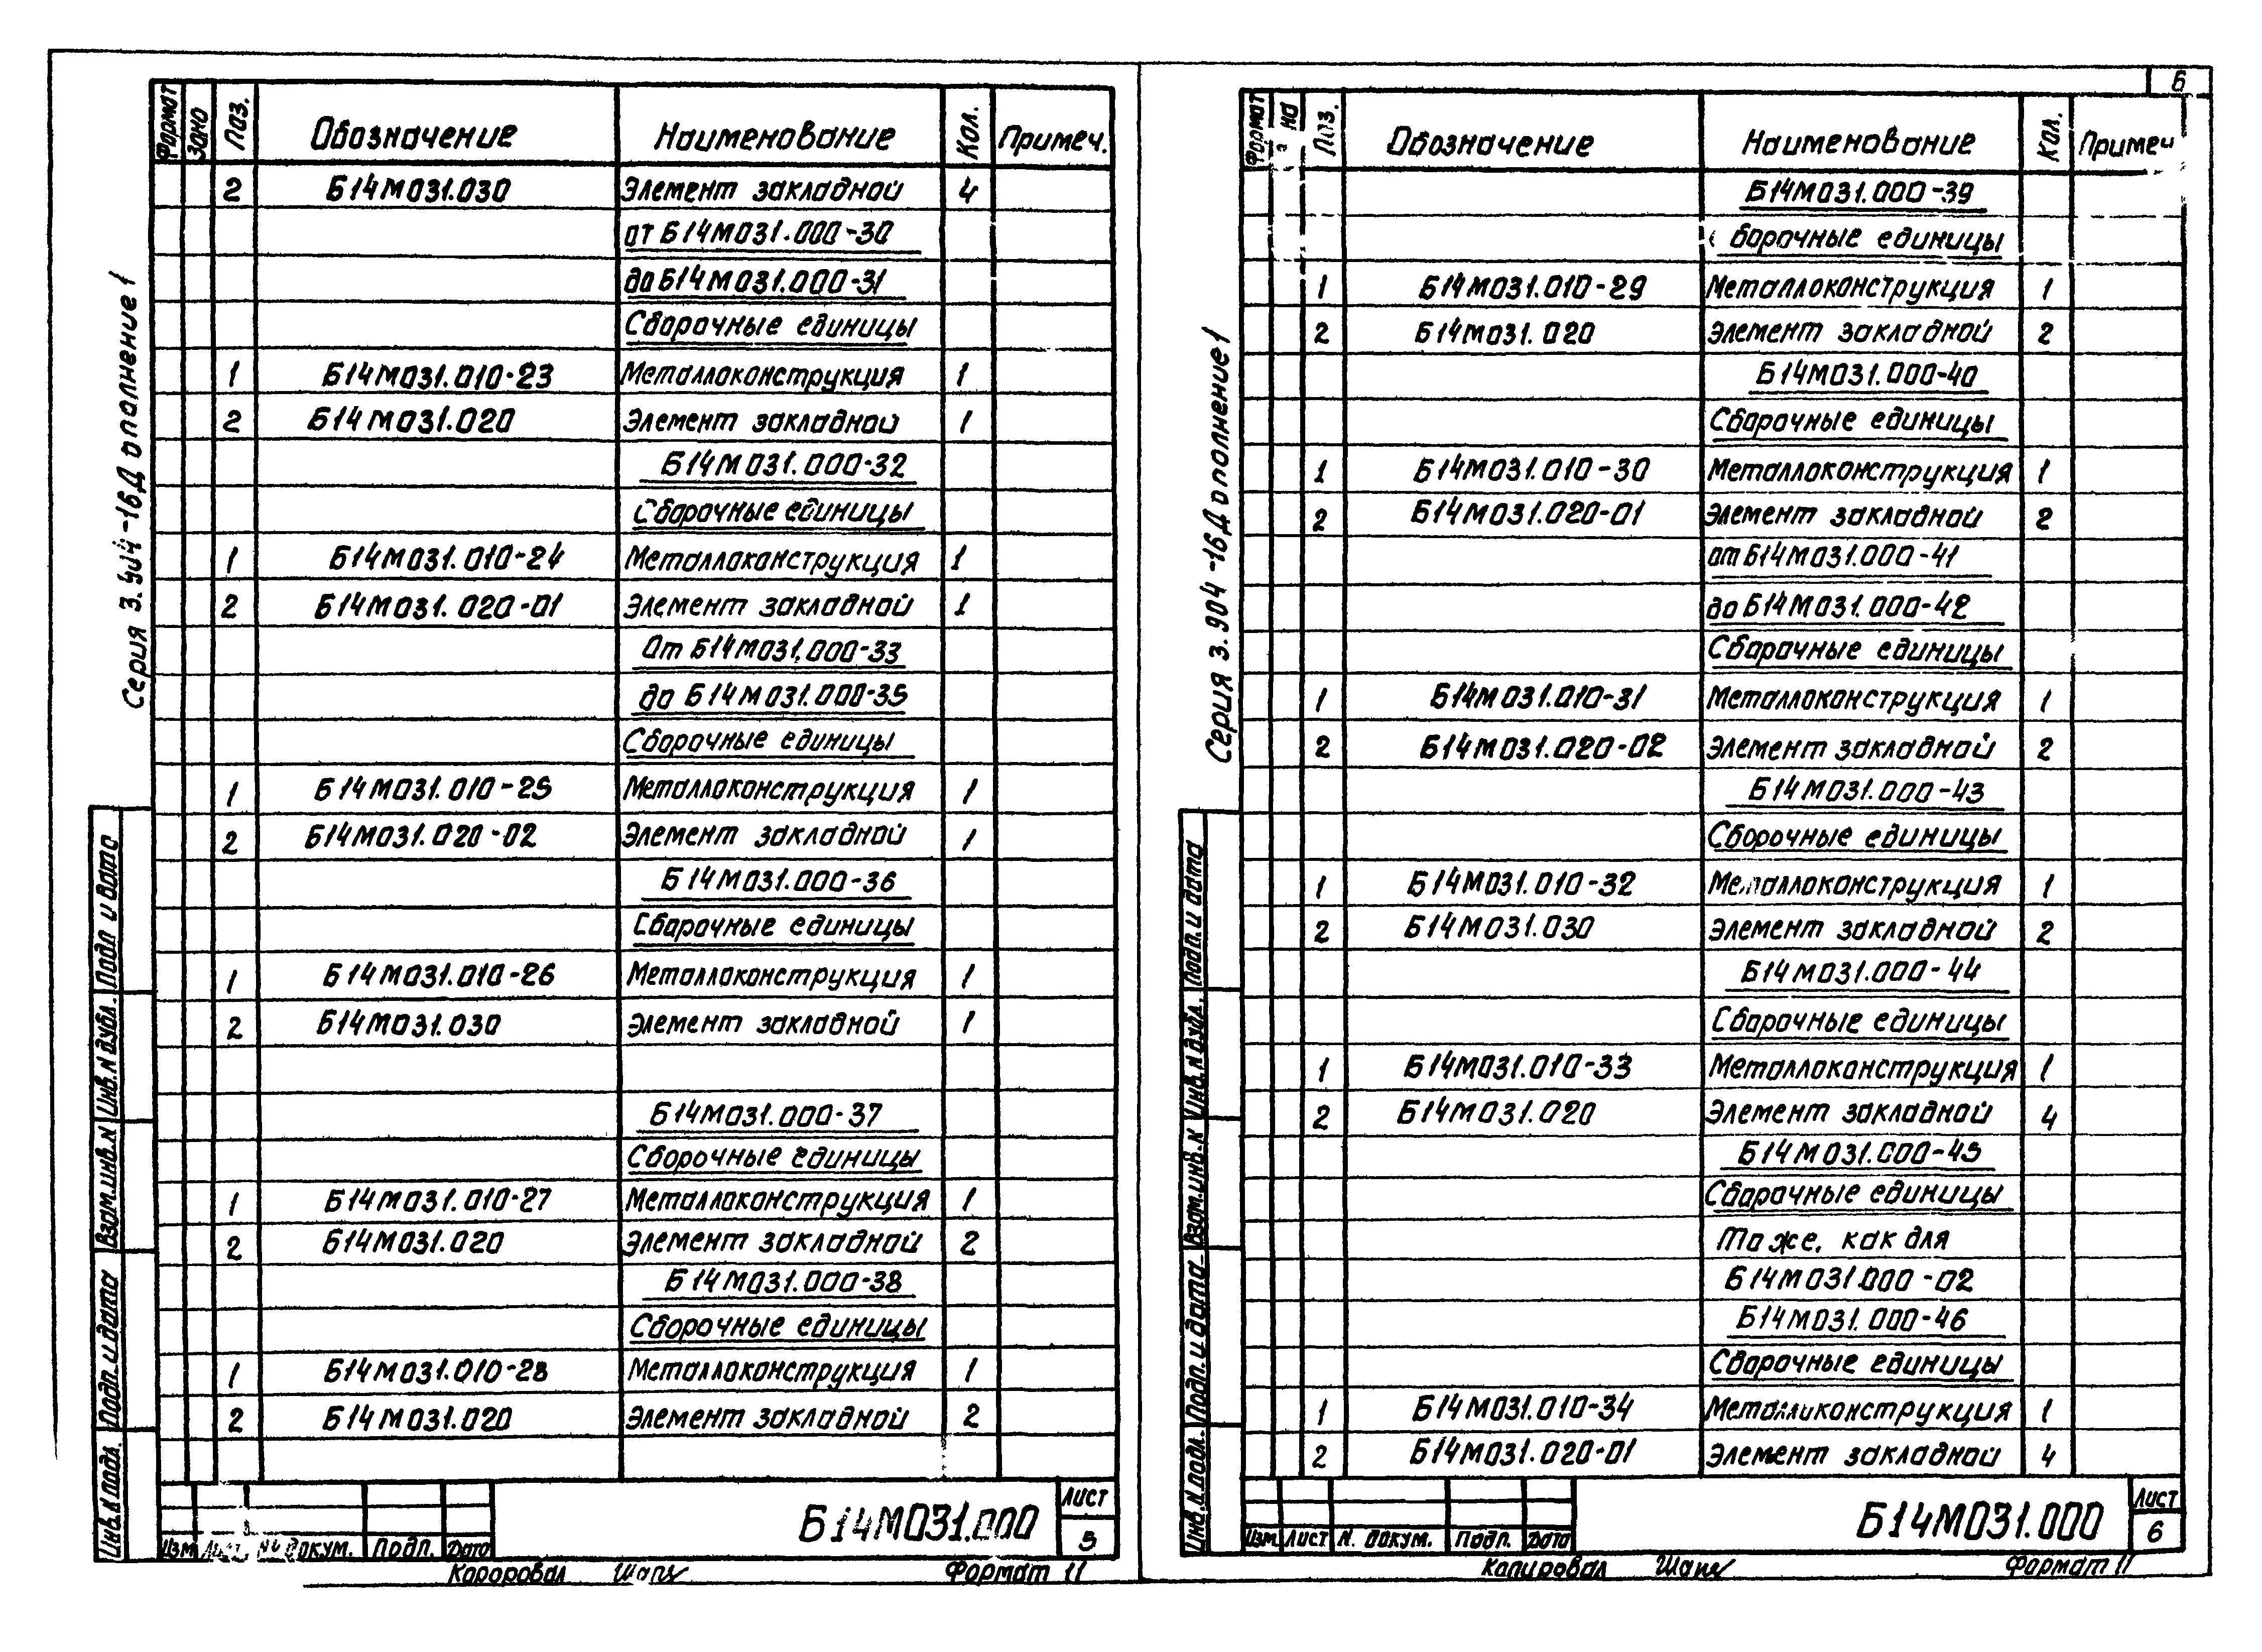 6
Серия 3.904-16 Дополнение 1
Формат Зона Поз. Обозначение Наименование Кол. Примеч.
2 Б14М031.030 Элемент закладной 4
от Б14М031.000-30
до Б14М031.000-31
Сборочные единицы
1 Б14М031.010-23 Металлоконструкция 1
2 Б14М031.020 Элемент закладной 1
Б14М031.000-32
Сборочные единицы
1 Б14М031.010-24 Металлоконструкция 1
2 Б14М031.020-01 Элемент закладной 1
От Б14М031.000-33
до Б14М031.000-35
Сборочные единицы
1 Б14М031.010-25 Металлоконструкция 1
2 Б14М031.020-02 Элемент закладной 1
Б14М031.000-36
Сборочные единицы
1 Б14М031.010-26 Металлоконструкция 1
2 Б14М031.030 Элемент закладной 1
Б14М031.000-37
Сборочные единицы
1 Б14М031.010-27 Металлоконструкция 1
2 Б14М031.020 Элемент закладной 2
Б14М031.000-38
Сборочные единицы
1 Б14М031.010-28 Металлоконструкция 1
2 Б14М031.020 Элемент закладной 2
Инв.N подл. Подп. и дата Взам.инв.N Инв.N дубл. Подп и дата
Изм Лист N докум. Подп. Дата
Б14М031.000
Лист
5
Копировал Формат 11
Серия 3.904-16 Дополнение 1
Формат Поз. Обозначение Наименование Кол. Примеч
Б14М031.000-39
Сборочные единицы
1 Б14М031.010-29 Металлоконструкция 1
2 Б14М031.020 Элемент закладной 2
Б14М031.000-40
Сборочные единицы
1 Б14М031.010-30 Металлоконструкция 1
2 Б14М031.020-01 Элемент закладной 2
от Б14М031.000-41
до Б14М031.000-42
Сборочные единицы
1 Б14М031.010-31 Металлоконструкция 1
2 Б14М031.020-02 Элемент закладной 2
Б14М031.000-43
Сборочные единицы
1 Б14М031.010-32 Металлоконструкция 1
2 Б14М031.030 Элемент закладной 2
Б14М031.000-44
Сборочные единицы
1 Б14М031.010-33 Металлоконструкция 1
2 Б14М031.020 Элемент закладной 4
Б14М031.000-45
Сборочные единицы
То же, как для
Б14М031.000-02
Б14М031.000-46
Сборочные единицы
1 Б14М031.010-34 Металлоконструкция 1
2 Б14М031.020-01 Элемент закладной 4
Инв.N подл. Подп. и дата Взам.инв.N Инв.N дубл. Подп. и дата
Изм. Лист N. докум. Подп. Дата
Б14М031.000
Лист
6
Копировал Формат 11